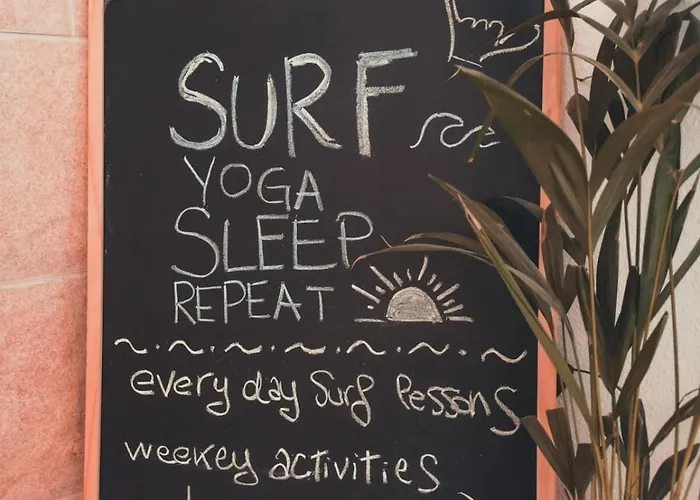 SURF
YOGA
SLEEP
REPEAT
every day Surf lessons
weekey activities